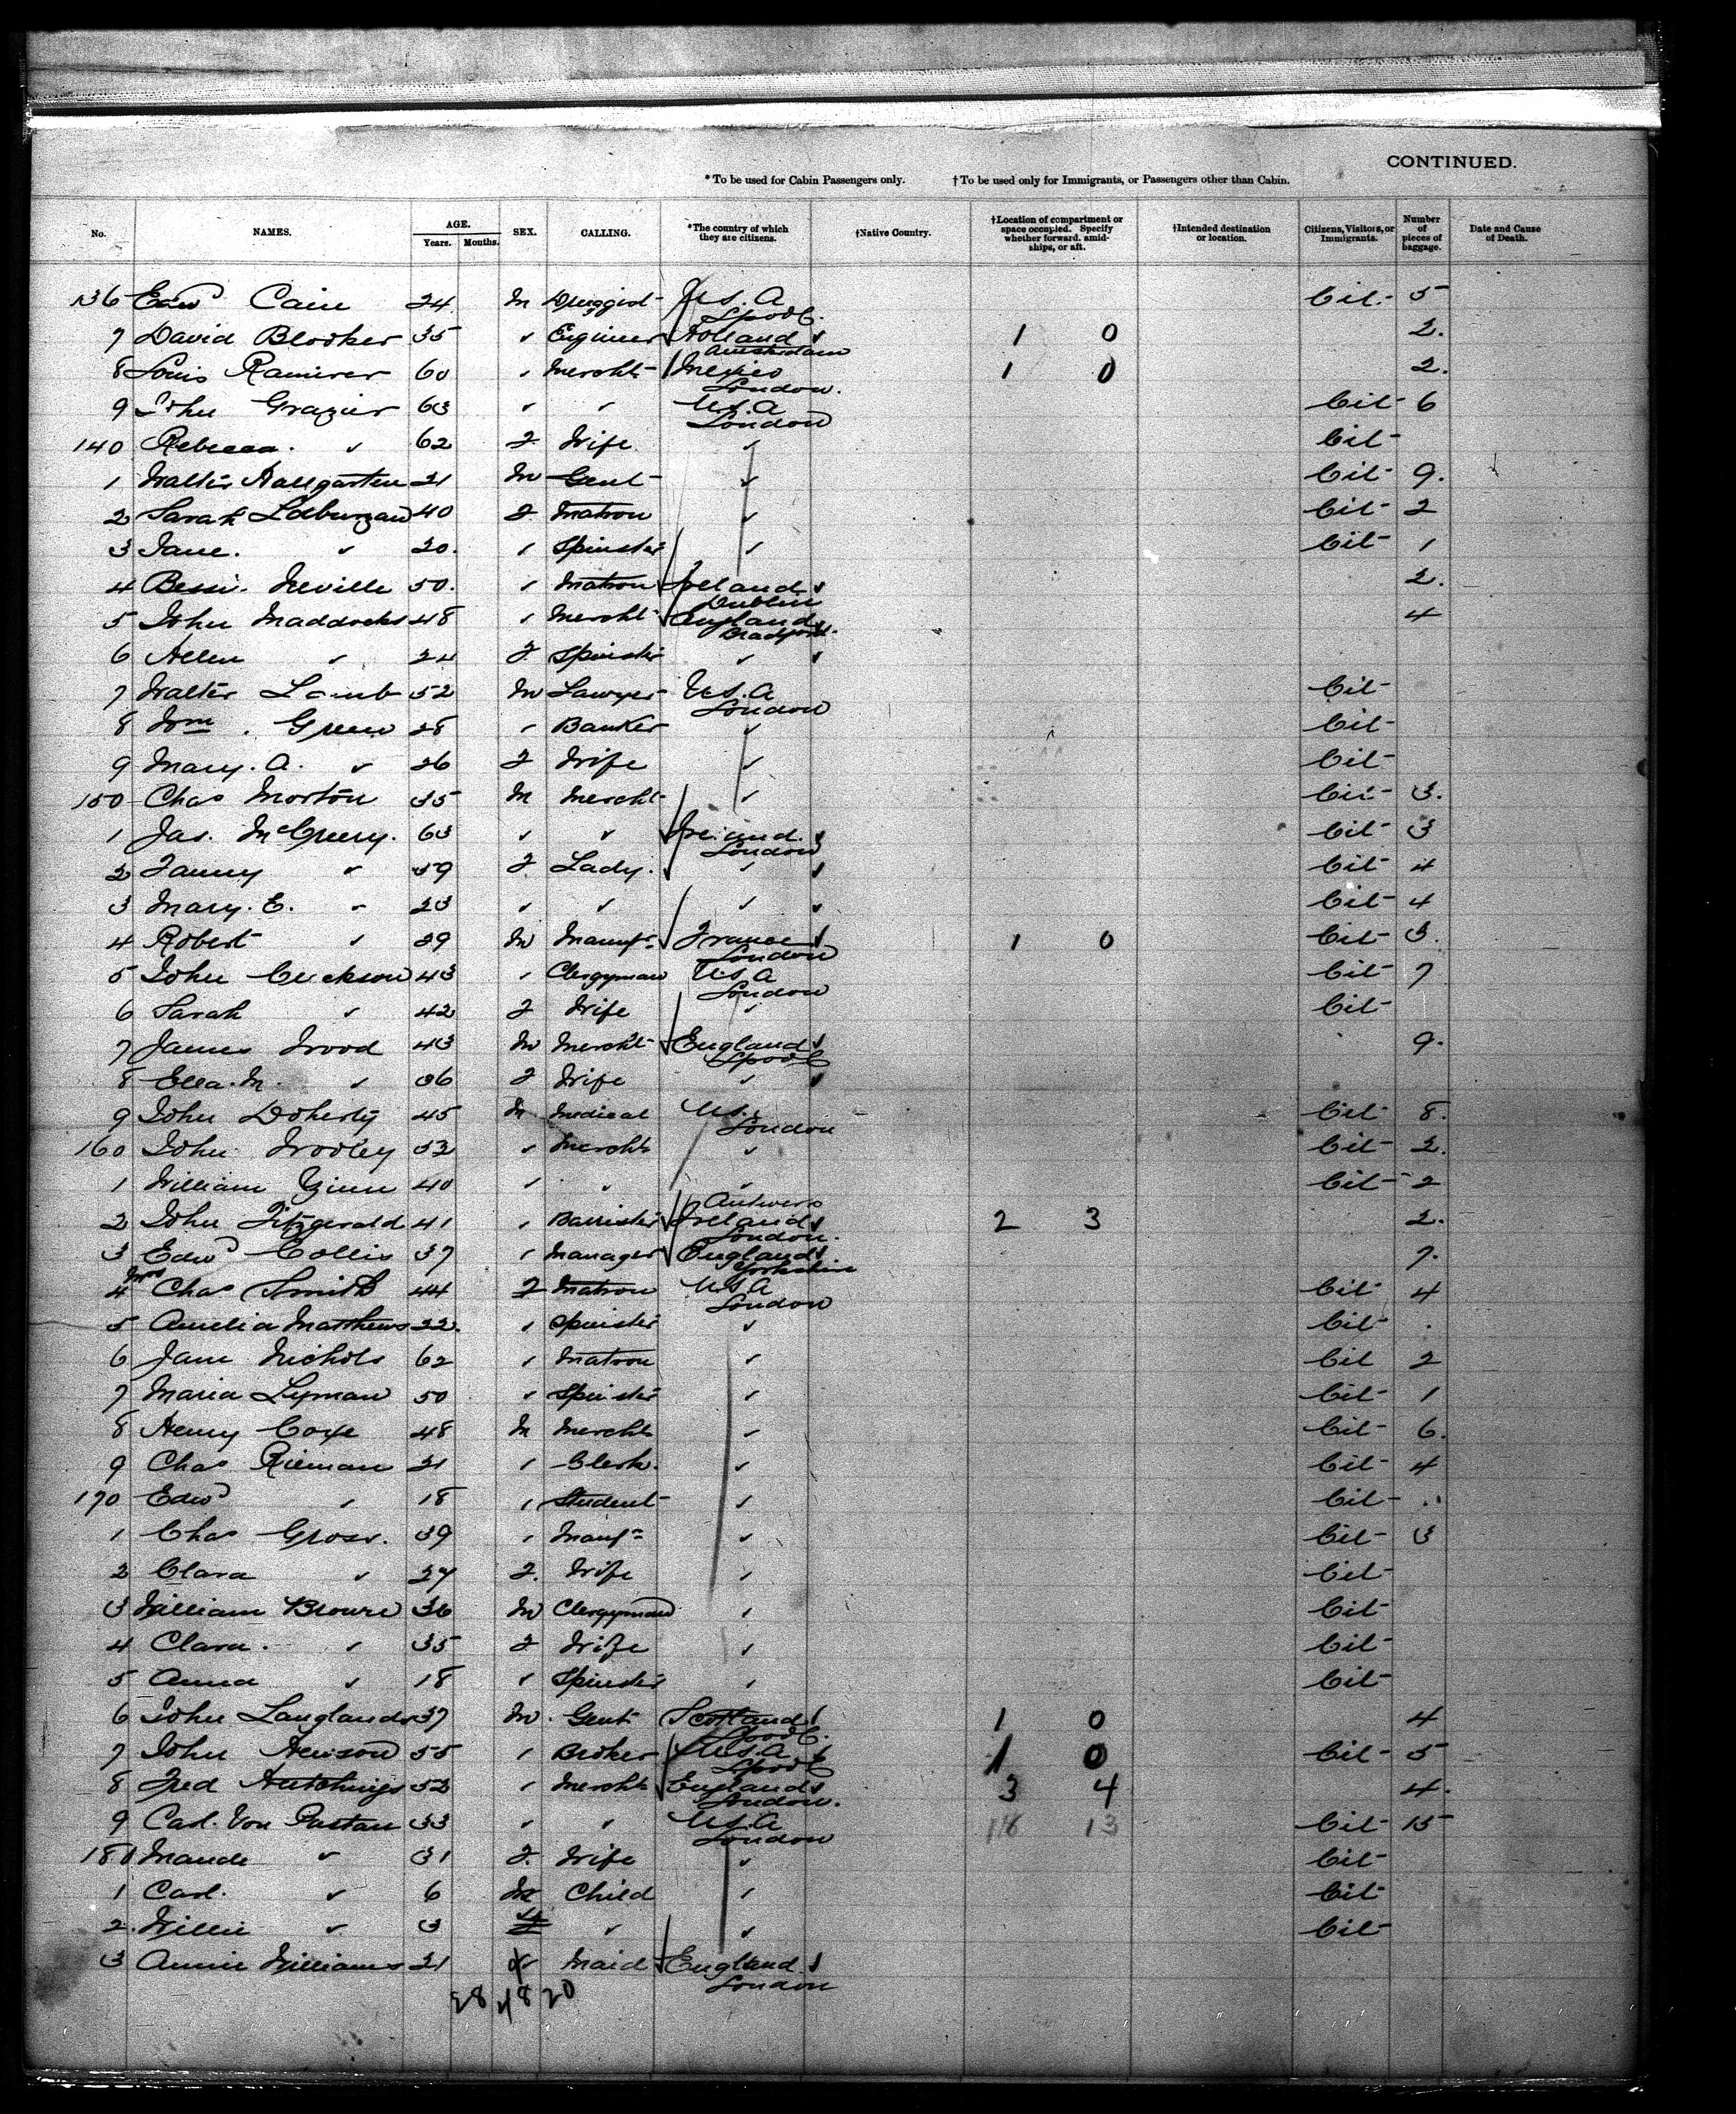 CONTINUED.
* To be used for Cabin Passengers only. † To be used only for Immigrants, or Passengers other than Cabin.
No. NAMES. AGE. Years. Months. SEX. CALLING. *The country of which they are citizens. †Native Country. †Location of compartment or space occupied. Specify whether forward, amidships, or aft. †Intended destination or location. Citizens, Visitors, or Immigrants. Number of pieces of baggage. Date and Cause of Death.
136 Edwd Cain 24 M Druggist U.S.A Cit- 5
Lpool
7 David Blooker 35 ✓ Engineer Holland 1 0 2.
Amsterdam
8 Louis Ramirer 60 ✓ Mercht- Mexico 1 0 2.
London.
9 John Grazier 63 ✓ ✓ U.S.A Cit- 6
London
140 Rebecca. ✓ 62 F Wife ✓ Cit-
1 Walter Hallgarten 21 M Gent- ✓ Cit- 9.
2 Sarah 40 F Matron ✓ Cit- 2
3 Jane. ✓ 20. ✓ Spinster ✓ Cit- 1
4 Bessie Neville 50. ✓ Matron Ireland 2.
Dublin
5 John Maddocks 48 ✓ Mercht England 4
Bradford.
6 Helen ✓ 24 F Spinster ✓
7 Walter Lamb 52 M Lawyer U.S.A Cit-
London
8 Wm. Green 28 ✓ Banker ✓ Cit-
9 Mary. A. ✓ 26 F Wife ✓ Cit-
150 Chas Morton 35 M Mercht- ✓ Cit- 3.
1 Jas. McCreery. 63 ✓ ✓ Ireland. Cit- 3
London
2 Fanny ✓ 59 F Lady. ✓ Cit- 4
3 Mary. E. ✓ 23 ✓ ✓ ✓ Cit- 4
4 Robert ✓ 29 M Manufr France 1 0 Cit- 3.
London
5 John 43 ✓ Clergyman U.S.A Cit- 7
London
6 Sarah ✓ 42 F Wife ✓ Cit-
7 James Wood 43 M Mercht- England 9.
Lpool
8 Ella. M. ✓ 36 F Wife ✓
9 John Doherty 45 M Medical U.S. Cit- 8.
London
160 John Wooley 52 ✓ Mercht ✓ Cit- 2.
1 William 40 ✓ ✓ ✓ Cit- 2
Antwerp
2 John Fitzgerald 41 ✓ Barrister Ireland 2 3 2.
London.
3 Edwd Collis 37 ✓ Manager England 7.
Yorkshire
Mrs
4 Chas Smith 44 F Matron U.S.A Cit- 4
London
5 Amelia Matthews 22. ✓ Spinster ✓ Cit- .
6 Jane Nichols 62 ✓ Matron ✓ Cit 2
7 Maria Lyman 50 ✓ Spinster ✓ Cit- 1
8 Henry Coxe 48 M Mercht ✓ Cit- 6.
9 Chas Rieman 21 ✓ Clerk. ✓ Cit- 4
170 Edwd ✓ 18 ✓ Student- ✓ Cit-
1 Chas Gross. 39 ✓ Manfr ✓ Cit- 3
2 Clara ✓ 27 F. Wife ✓ Cit-
3 William 36 M Clergyman ✓ Cit-
4 Clara. ✓ 35 F Wife ✓ Cit-
5 Anna ✓ 18 ✓ Spinster ✓ Cit-
6 John Langlands 37 M. Gent Scotland 1 0 4
Lpool.
7 John Hewson 55 ✓ Broker U.S.A. 1 0 Cit- 5
Lpool
8 Fred Hutchings 52 ✓ Mercht England 3 4 4.
London.
9 Carl. Von Pustau 33 ✓ ✓ U.S.A 13 Cit- 15
London
180 Maude ✓ 31 F. Wife ✓ Cit-
1 Carl. ✓ 6 M Child ✓ Cit-
2. Willie ✓ 3 M ✓ ✓ Cit-
3 Annie Williams 21 Maid England
London
28 48 20